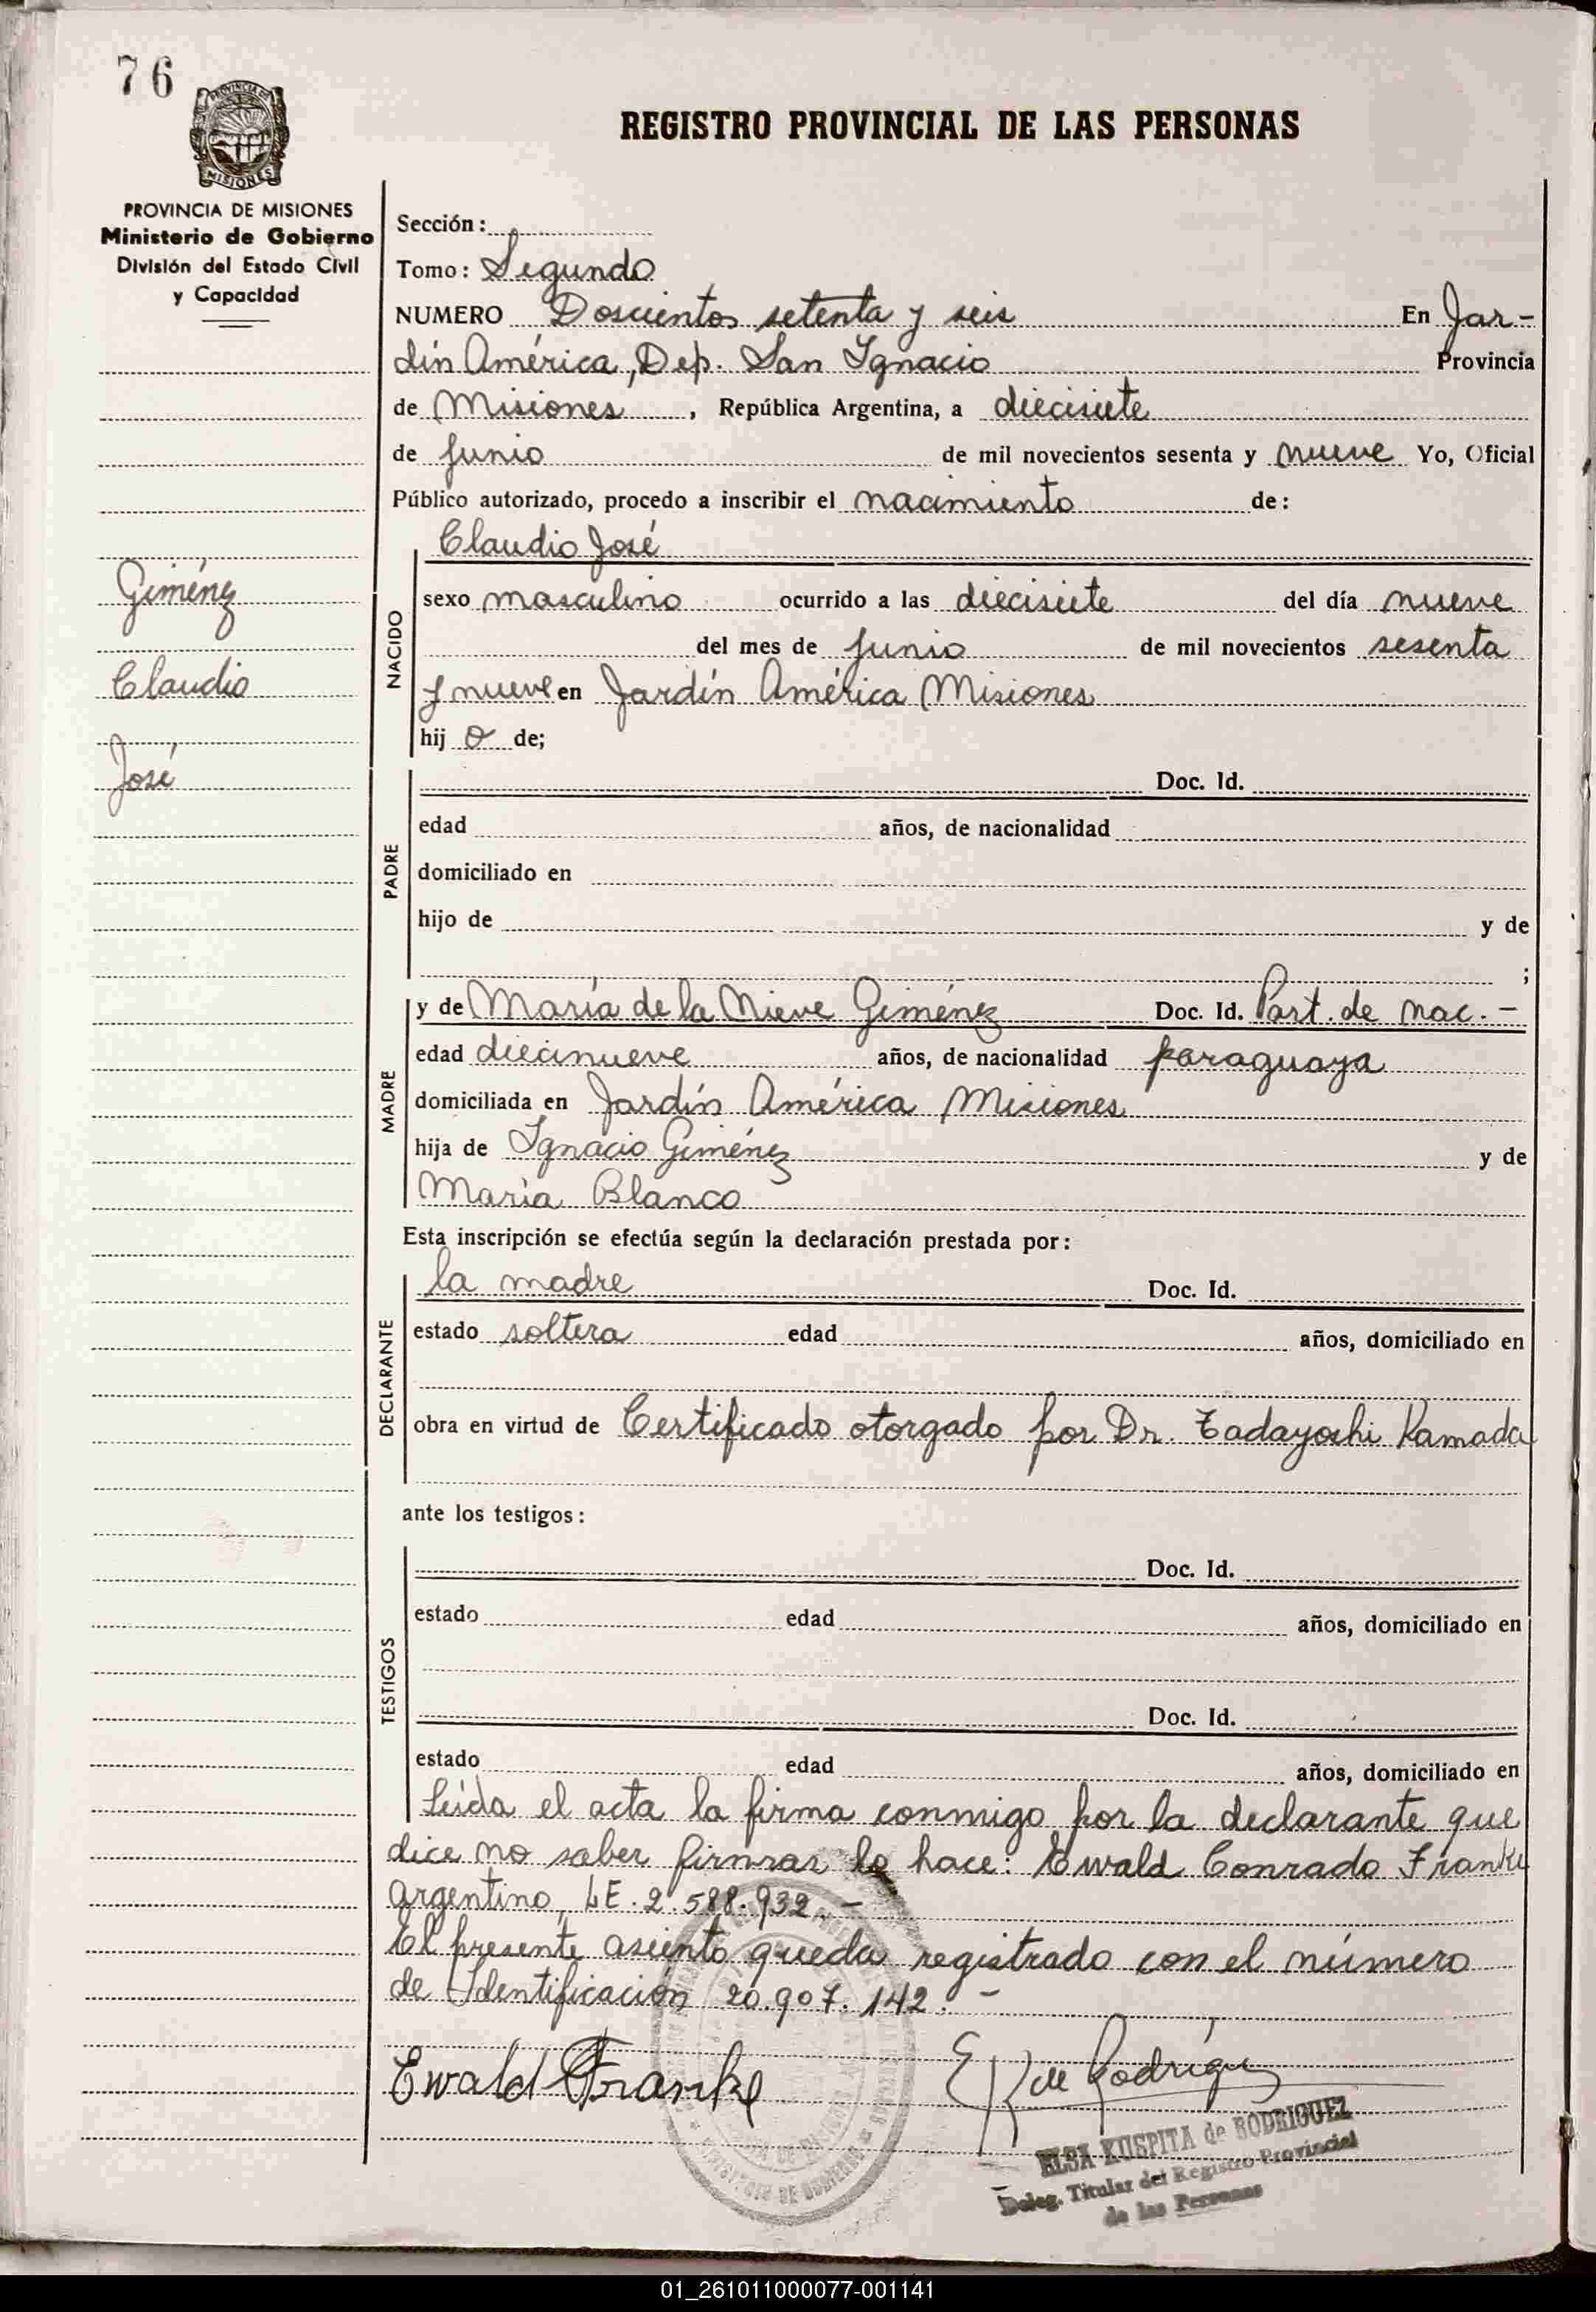 76
PROVINCIA DE
MISIONES
REGISTRO PROVINCIAL DE LAS PERSONAS
PROVINCIA DE MISIONES
Ministerio de Gobierno
División del Estado Civil
y Capacidad
Giménez
Claudio
José
Sección:
Tomo: Segundo
NUMERO Doscientos setenta y seis En Jar-
dín América, Dep. San Ignacio Provincia
de Misiones, República Argentina, a diecisiete
de Junio de mil novecientos sesenta y nueve Yo, Oficial
Público autorizado, procedo a inscribir el nacimiento de:
NACIDO
Claudio José
sexo masculino ocurrido a las diecisiete del día nueve
del mes de Junio de mil novecientos sesenta
y nueve en Jardín América Misiones
hij o de;
PADRE
Doc. Id.
edad años, de nacionalidad
domiciliado en
hijo de y de
;
MADRE
y de María de la Nieve Giménez Doc. Id. Part. de nac. -
edad diecinueve años, de nacionalidad paraguaya
domiciliada en Jardín América Misiones
hija de Ignacio Giménez y de
María Blanco
Esta inscripción se efectúa según la declaración prestada por:
DECLARANTE
la madre Doc. Id.
estado soltera edad años, domiciliado en
obra en virtud de Certificado otorgado por Dr. Tadayoshi Kamada
ante los testigos:
TESTIGOS
Doc. Id.
estado edad años, domiciliado en
Doc. Id.
estado edad años, domiciliado en
Leída el acta la firma conmigo por la declarante que
dice no saber firmar lo hace: Ewald Conrado Franke
argentino, LE. 2.588.932. -
El presente asiento queda registrado con el número
de Identificación 20.907.142. -
Ewald Franke
E K de Rodríguez
ELSA KUSPITA de RODRIGUEZ
Deleg. Titular del Registro Provincial
de las Personas
01_261011000077-001141